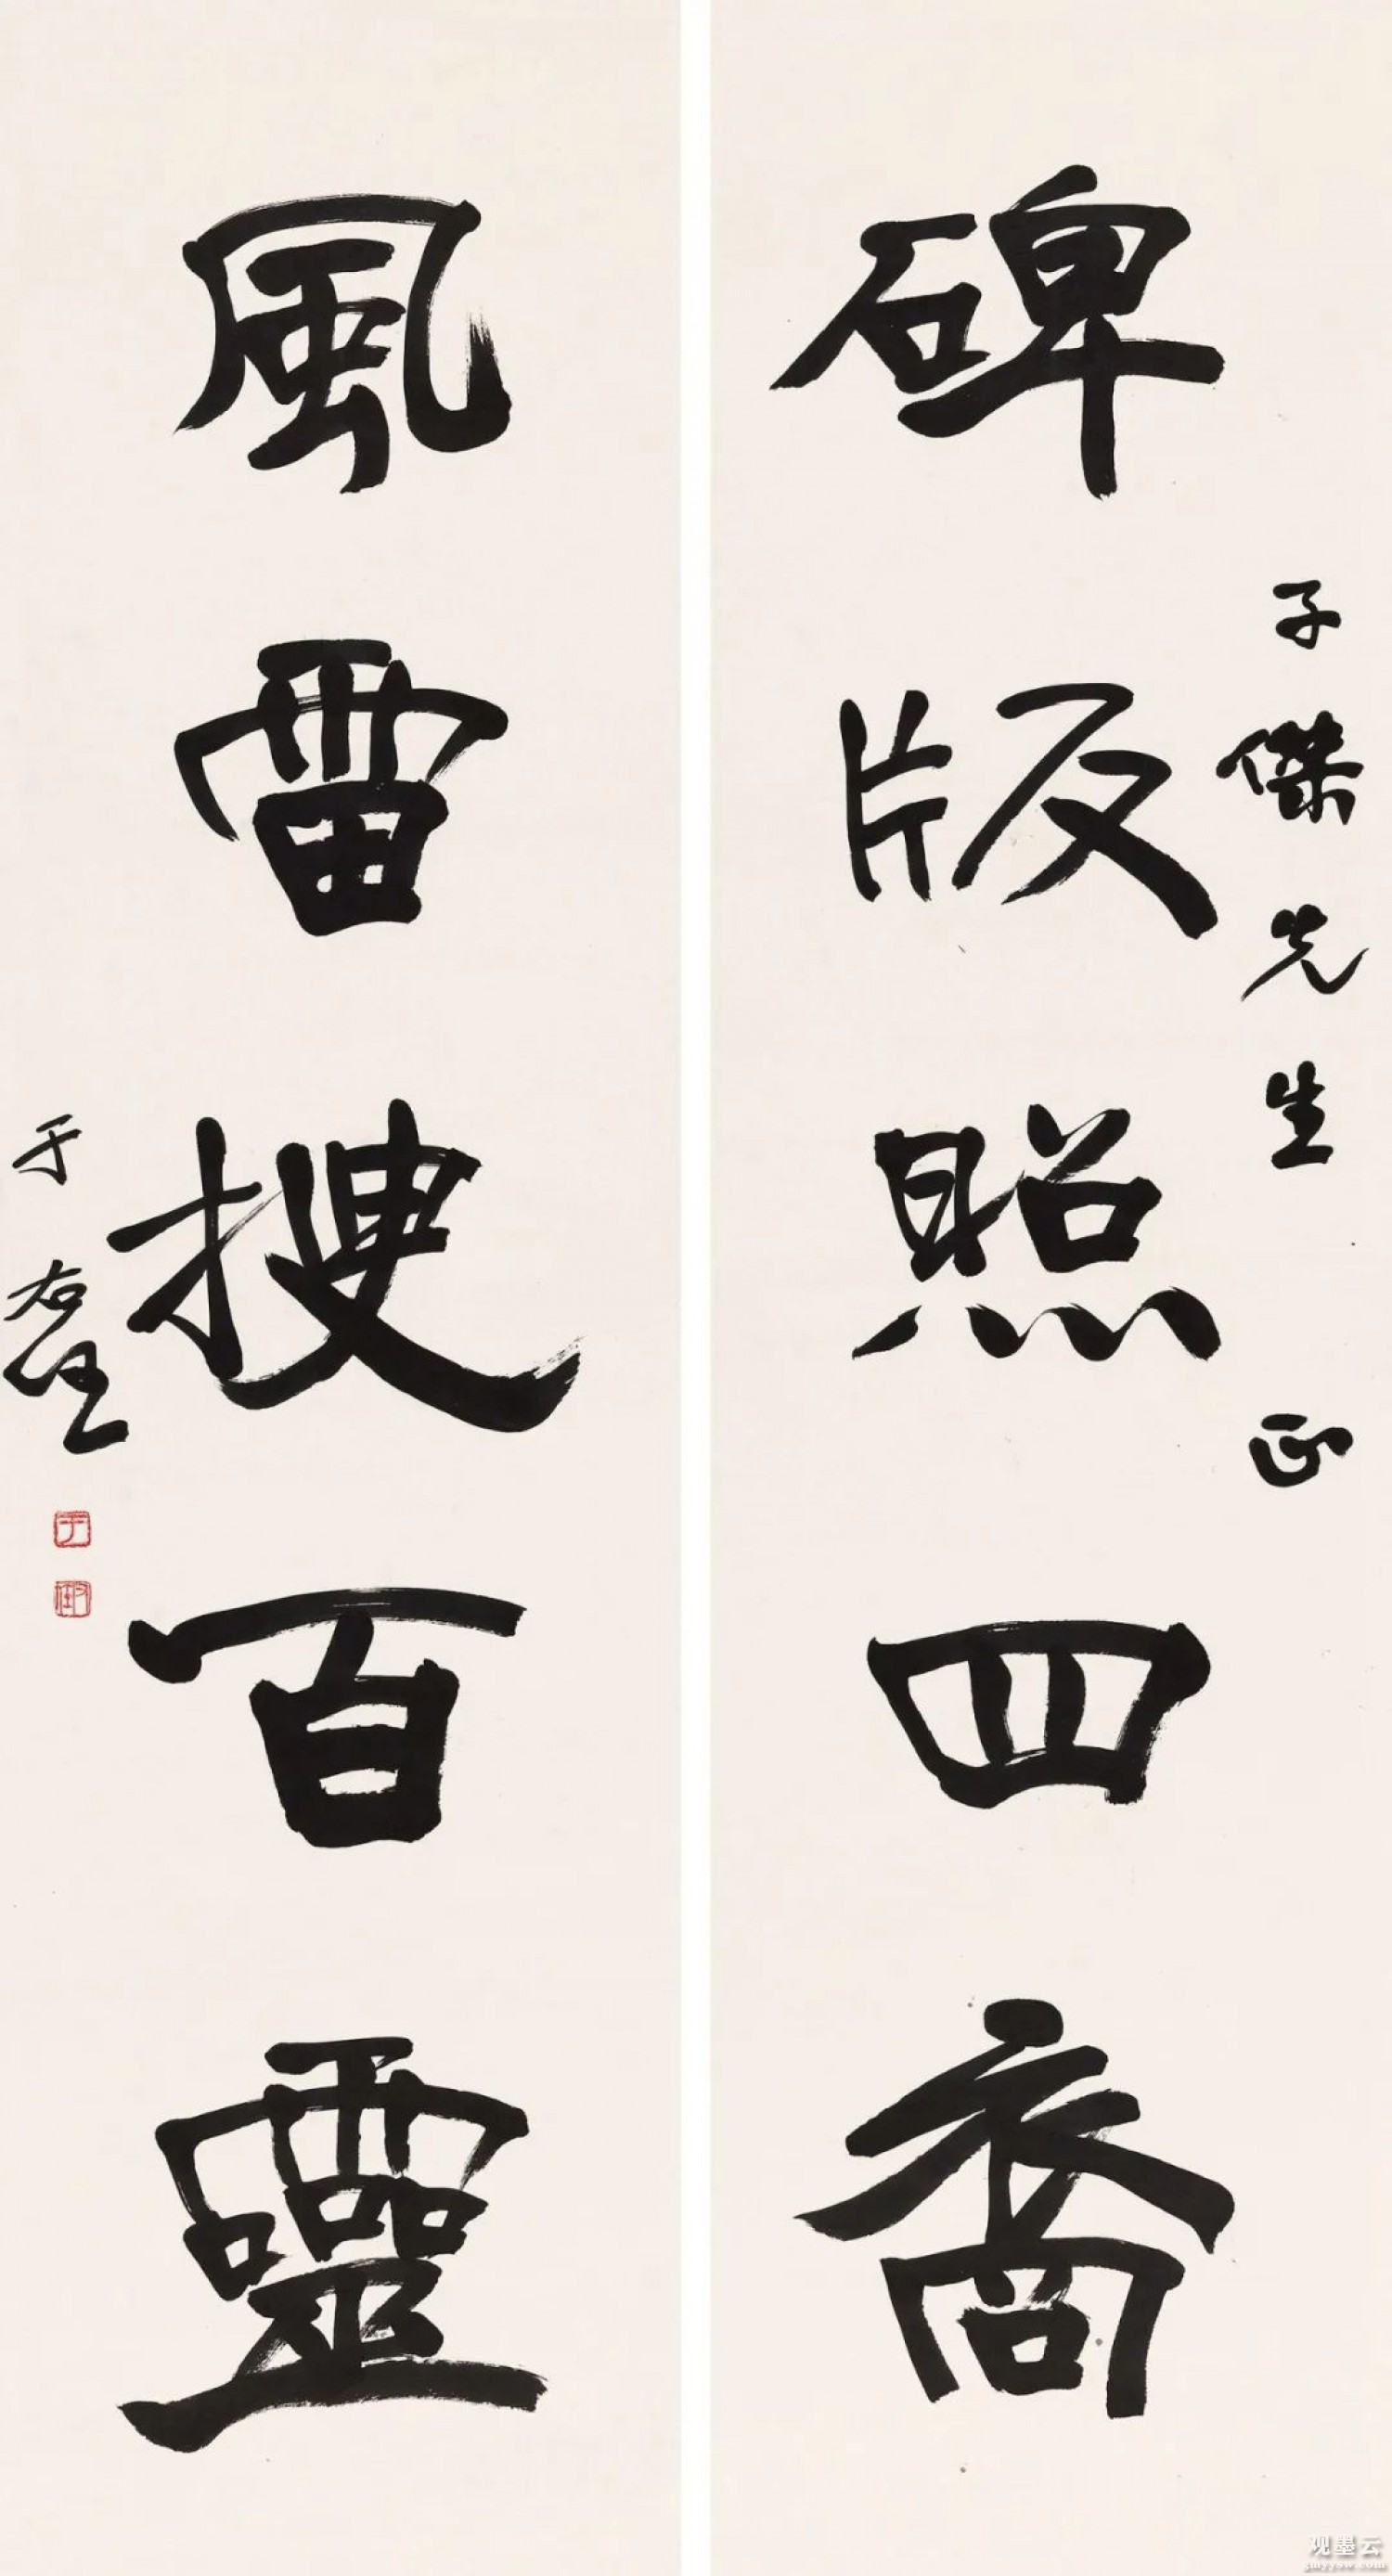 碑版照四裔
子傑先生 正
風雷搜百靈
于右任
于
观墨云